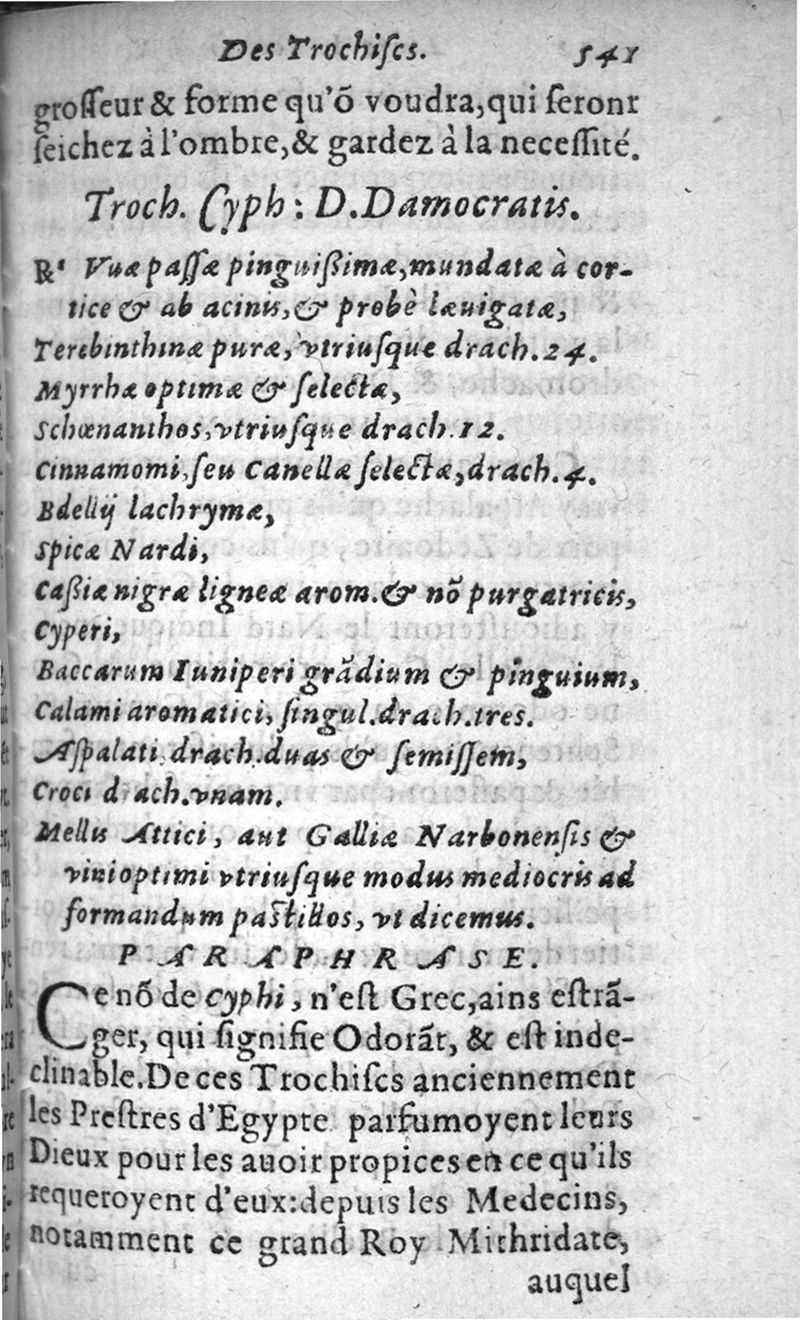 Des Trochiſcs. 541
groſſeur & forme qu'õ voudra, qui ſeront
ſeichez à l'ombre, & gardez à la neceſſité.
Troch. Cyph: D. Damocratis.
℞ Vuæ paſſæ pinguißimæ, mundatæ à cor-
tice & ab acinis, & probè læuigatæ,
Terebinthinæ puræ, vtriuſque drach. 24.
Myrrhæ optimæ & ſelectæ,
Schœnanthos, vtriuſque drach. 12.
Cinnamomi, ſeu Canellæ ſelectæ, drach. 4.
Bdellij lachrymæ,
Spicæ Nardi,
Caßiæ nigræ ligneæ arom. & nõ purgatricis,
Cyperi,
Baccarum Iuniperi grãdium & pinguium,
Calami aromatici, ſingul. drach. tres.
Aſpalati drach. duas & ſemiſſem,
Croci drach. vnam.
Mellis Attici, aut Galliæ Narbonenſis &
vini optimi vtriuſque modus mediocris ad
formandum paſtillos, vt dicemus.
PARAPHRASE.
Ce nõ de Cyphi, n'eſt Grec, ains eſtrã-
ger, qui ſignifie Odorãt, & eſt inde-
clinable. De ces Trochiſcs anciennement
les Preſtres d'Egypte parfumoyent leurs
Dieux pour les auoir propices en ce qu'ils
requeroyent d'eux: depuis les Medecins,
notamment ce grand Roy Mithridate,
auquel